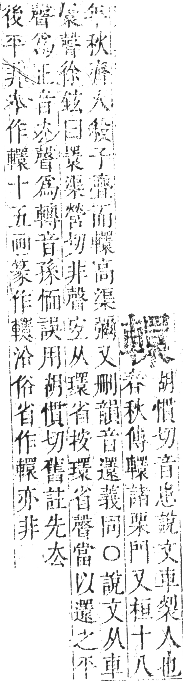 轘
胡慣切音患說文車裂人也
春秋傳轘諸栗門又桓十八
年秋齊人殺子亹而轘高渠彌又刪韻音還義同○說文从車
瞏聲徐鉉曰瞏渠營切非聲宜从環省按環省聲當以還之平
聲爲正音去聲爲轉音孫愐誤用胡慣切舊註先去
後平𠀤非本作轘十五畫篆作轘俗省作轘亦非